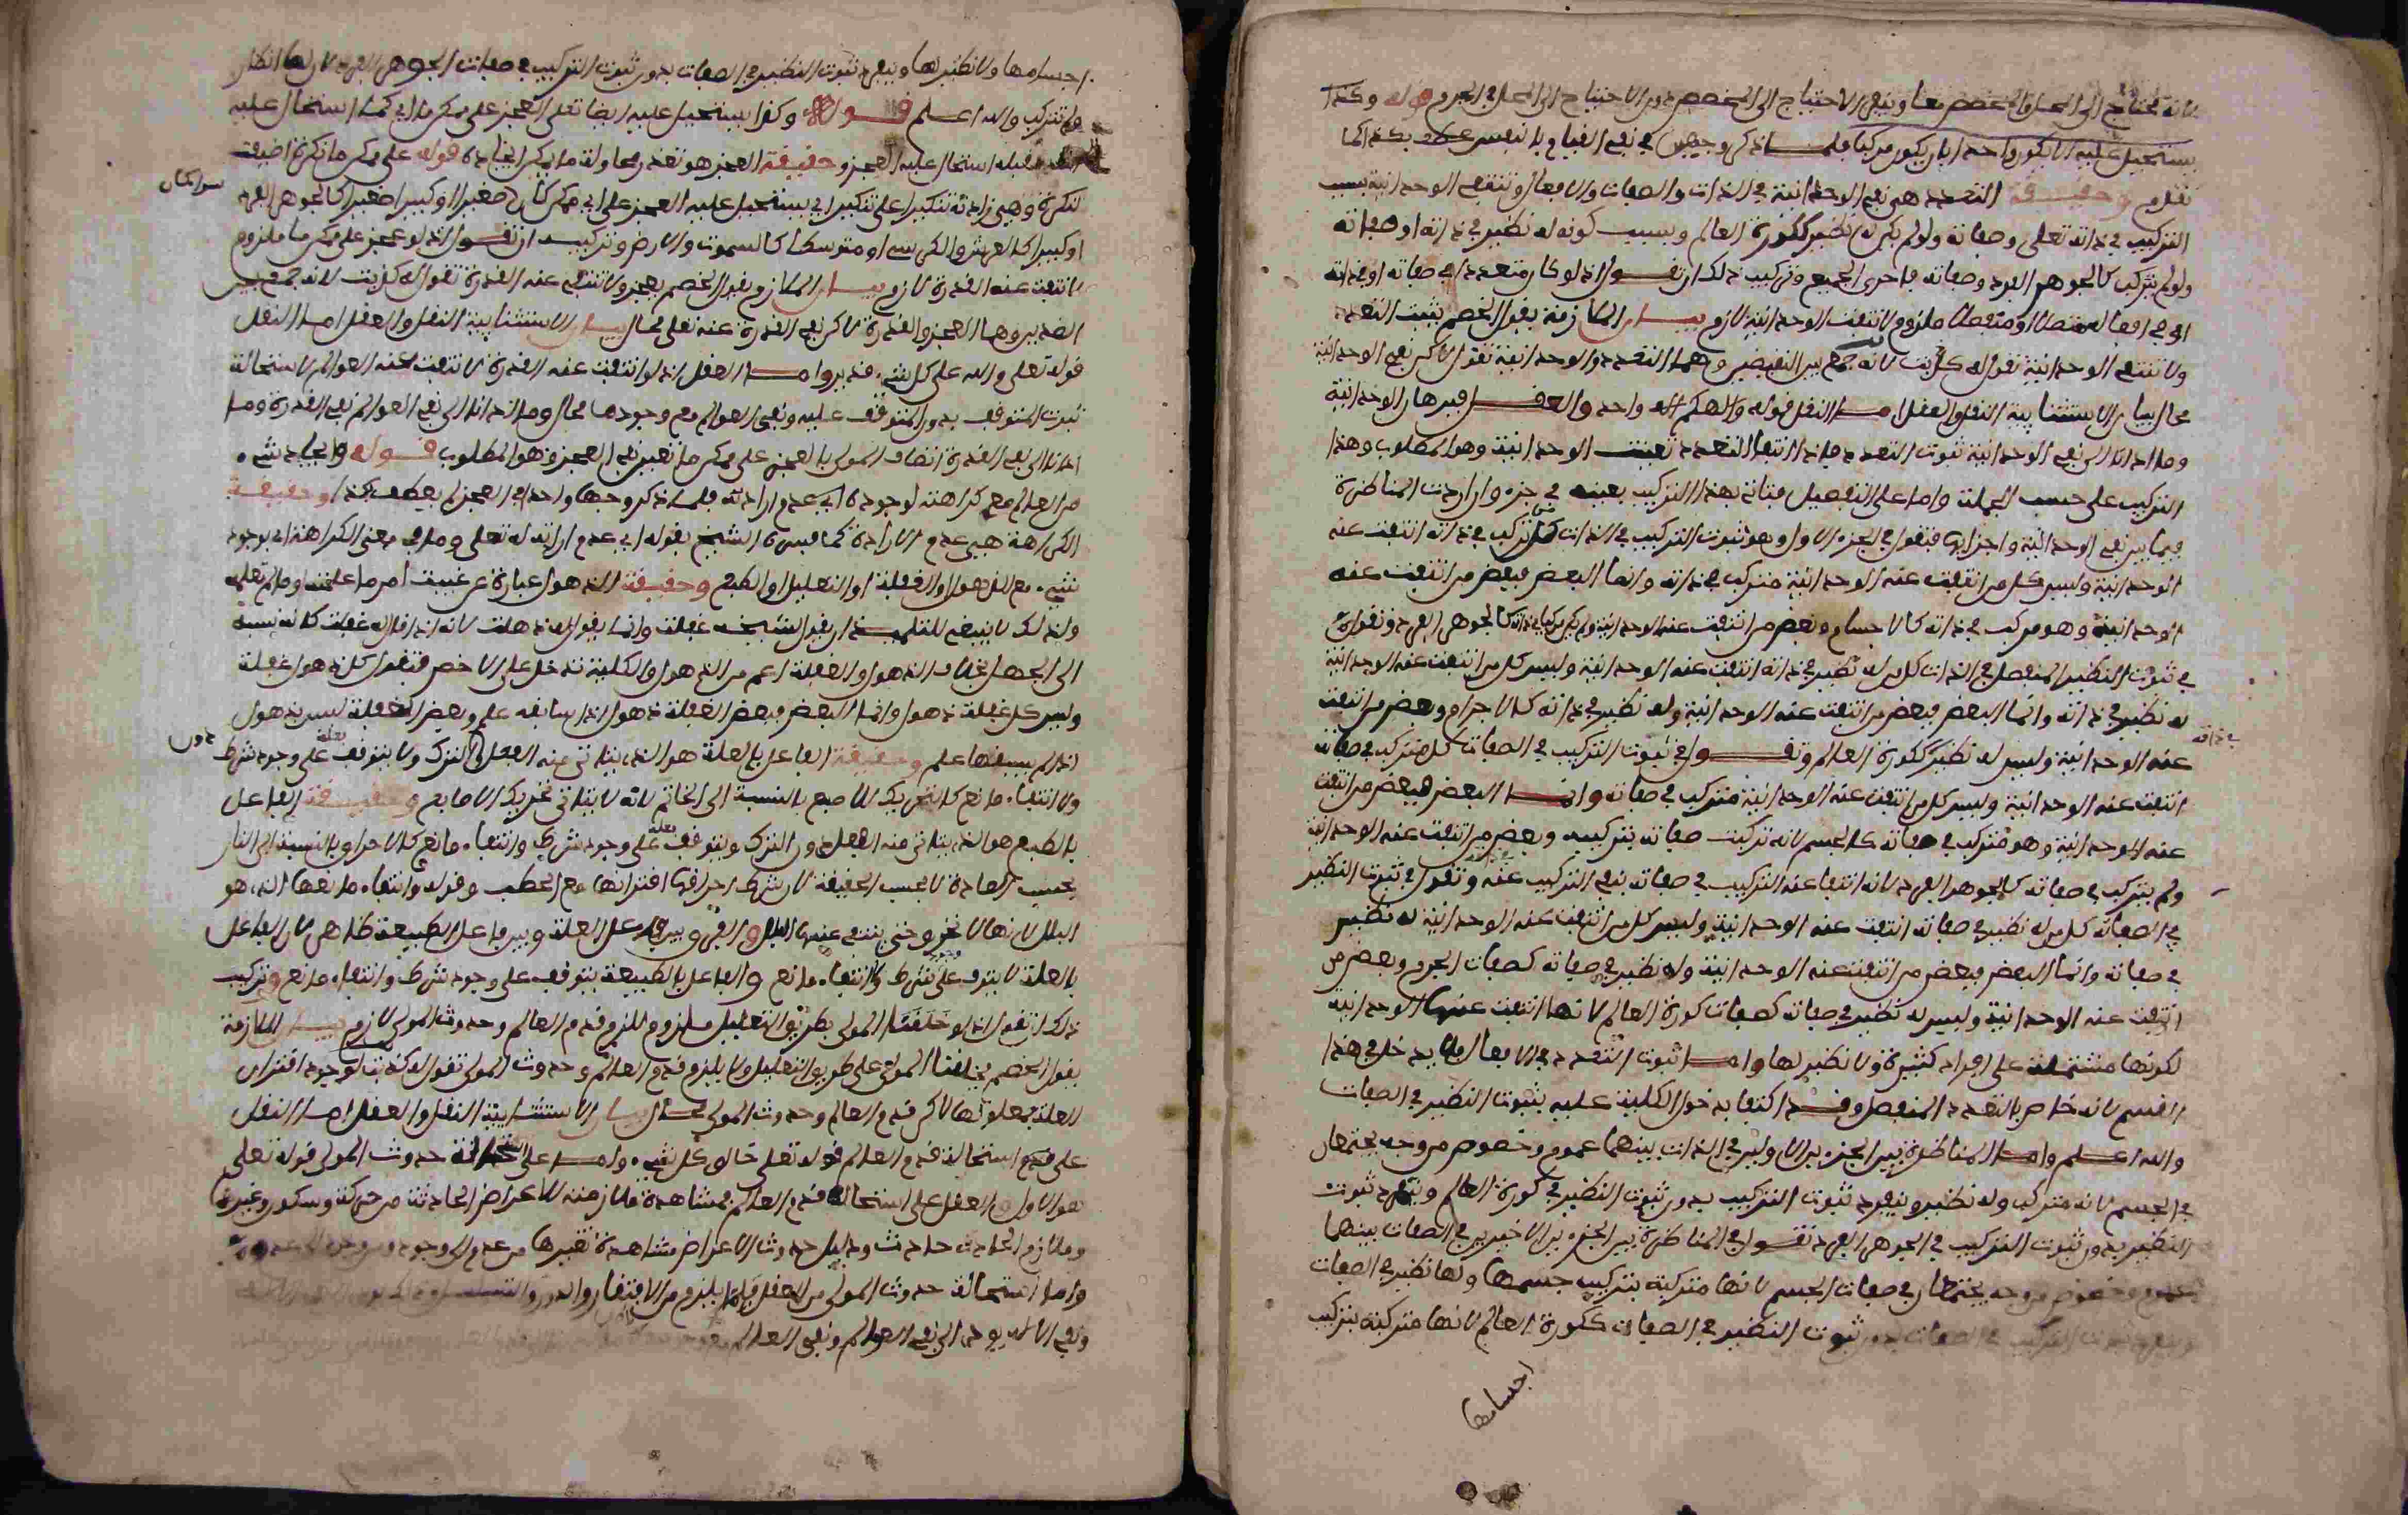 لأنه يحتاج إلى المحل والمخصص معا وينفرد الاحتياج إلى المخصص دون الاحتياج إلى المحل في الجرم قوله وكذا
يستحيل عليه ألا يكون واحدا بأن يكون مركبا فلما ذكر وجهين في نفي القيام بالنفس بكذا كما
تقدم وحقيقة التعدد هي نفي الوحدانية في الذات والصفات والأفعال وتنتفي الوحدانية بسبب
التركيب في ذاته تعلى وصفاته ولو لم يكن له نظير ككورة العالم وبسبب كونه له نظير في ذاته أو صفاته
ولو لم يتركب كالجوهر الفرد وصفاته فأحرى الجميع وتركيب ذلك أن تقول إنه لو كان متعددا في صفاته أو في ذاته
أو في أفعاله متصلا أو منفصلا ملزوم لانتفت الوحدانية لازم بيان الملازمة يقول الخصم يثبت التعدد
ولا تنتفي الوحدانية نقول له كذبت لأنه جمع بين النقيضين وهما التعدد والوحدانية نقول لاكن نفي الوحدانية
محال بيان الاستثنائية النقل والعقل أما النقل قوله وإلهكم إله واحد والعقل
وما أدانا إلى نفي الوحدانية ثبوت التعدد فإذا انتفا التعدد تعينت الوحدانية وهو المطلوب وهذا
التركيب على حسب الجملة وأما على التفصيل فتأتي بهذا التركيب بعينه في جزء وإن أردت المناظرة
فيما بين نفي الوحدانية وأجزائها فتقول في الجزء الأول وهو ثبوت التركيب في الذات كل من تركب في ذاته انتفت عنه
الوحدانية وليس كل من انتفت عنه الوحدانية متركب في ذاته وإنما البعض فبعض من انتفت عنه
الوحدانية وهو مركب في ذاته كالأجسام وبعض من انتفت عنه الوحدانية ولم يكن مركبا في ذاته كالجوهر الفرد وتقول
في ثبوت النظير المنفصل في الذات كل من له نظير في ذاته انتفت عنه الوحدانية وليس كل من انتفت عنه الوحدانية
له نظير في ذاته وإنما البعض فبعض من انتفت عنه الوحدانية وله نظير في ذاته كالأجرام وبعض من انتفت
في ذاته
عنه الوحدانية وليس له نظير ككورة العالم وتقول في ثبوت التركيب في الصفات كل متركب في صفاته
انتفت عنه الوحدانية وليس كل من انتفت عنه الوحدانية متركب في صفاته وإنما البعض فبعض من انتفت
عنه الوحدانية وهو متركب في صفاته كالجسم لأنه تركبت صفاته بتركيبه وبعض من انتفت عنه الوحدانية
ولم يتركب في صفاته كالجوهر الفرد لأنه انتفا عنه التركيب في صفاته بنفي التركيب عنه وتقول في ثبوت النظير
في الصفات كل من له نظير في صفاته انتفت عنه الوحدانية وليس كل من انتفت عنه الوحدانية له نظير
في صفاته وإنما البعض فبعض من انتفت عنه الوحدانية وله نظير في صفاته كصفات الجرم وبعض من
انتفت عنه الوحدانية وليس له نظير في صفاته كصفات كورة العالم لأنها انتفت عنها الوحدانية
لكونها مشتملة على أفراد كثيرة ولا نظير لها وأما ثبوت التعدد في الأفعال فلا يدخل في هذا
القسم لأنه خاص بالتعدد المنفصل وقد اكتفا بدخول الكلية عليه بثبوت النظير في الصفات
والله اعلم وأما المناظرة بين الجزءين الأولين في الذات بينهما عموم وخصوص من وجه يجتمعان
في الجسم لأنه متركب وله نظير وينفرد ثبوت التركيب بدون ثبوت النظير في كورة العالم وينفرد ثبوت
النظير بدون ثبوت التركيب في الجوهر الفرد تقول في المناظرة بين الجزءين الأخيرين في الصفات بينهما
عموم وخصوص من وجه يجتمعان في صفات الجسم لأنها متركبة بتركيب جسمها ولها نظير في الصفات
وينفرد ثبوت التركيب في الصفات بدون ثبوت النظير في الصفات ككورة العالم لأنها متركبة بتركيب
أجسامها
أجسامها ولا نظير لها وينفرد ثبوت النظير في الصفات بدون ثبوت التركيب في صفات الجوهر الفرد لأن لها نظير
ولم تتركب والله اعلم قوله وكذا يستحيل عليه أيضا تعلى العجز على ممكن ما أي كما استحال عليه
قبله استحال عليه العجز وحقيقة العجز هو تعذر محاولة ما يمكن إيجاده قوله على ممكن ما نكرة أضيفت
لنكرة وهي زادته تنكيرا على تنكير أي يستحيل عليه العجز على أي ممكن كان صغيرا أو كبيرا صغيرا كالجوهر الفرد
سوا كان
أو كبيرا كالعرش والكرسي أو متوسطا كالسموات والأرض وتركيبه أن تقول إنه لو عجز على ممكن ما ملزوم
لانتفت عنه القدرة لازم بيان الملازمة يقول الخصم يعجز ولا تنتفي عنه القدرة تقول له كذبت لأنه جمع بين
الضدين وهما العجز والقدرة لاكن نفي القدرة عنه تعلى محال بيان الاستثنائية النقل والعقل أما النقل
قوله تعلى والله على كل شيء قدير وأما العقل إنه لو انتفت عنه القدرة لانتفت عنه العوالم لاستحالة
ثبوت المتوقف بدون المتوقف عليه ونفي العوالم مع وجودها محال وما أدانا إلى نفي العوالم نفي القدرة وما
أدانا إلى نفي القدرة اتصاف المولى بالعجز على ممكن ما تعين نفي العجز وهو المطلوب قوله وإيجاد شيء
من العالم مع كراهته لوجوده أي عدم إرادته فلما ذكر وجها واحدا في العجز لم يعطف بكذا وحقيقة
الكراهة هي عدم الإرادة كما فسره الشيخ بقوله أي عدم إرادته له تعلى وما في معنى الكراهة أي بوجود
شيء مع الذهول أو الغفلة أو التعليل أو الطبع وحقيقة الذهول عبارة عن غيبت أمر ما علمته أو ما لم تعلمه
ولذلك لا ينبغي للتلميذ أن يقول لشيخه غفلت وإنما يقول له ذهلت لأنه إذا قال له غفلت كأنه نسبه
إلى الجهل بخلاف الذهول والغفلة أعم من الذهول والكلية تدخل على الأخص فتقول كل ذهول غفلة
وليس كل غفلة ذهول وإنما البعض فبعض الغفلة ذهول إذا سابقه علم وبعض الغفلة ليس بذهول
إذا لم يسبقها علم وحقيقة الفاعل بالعلة هو الذي يتأتى منه الفعل دون الترك ولا يتوقف فعله على وجود شرط
دون
ولا انتفاء مانع كالتحريك للأصبع بالنسبة إلى الخاتم لأنه لا يتأتى تحريك الأصابع وحقيقة الفاعل
بالطبع هو الذي يتأتى منه الفعل دون الترك ويتوقف فعله على وجود شرط وانتفاء مانع كالإحراق بالنسبة إلى النار
بحسب العادة لا بحسب الحقيقة لأن شرط إحراقها اقترانها مع الحطب وقوله وانتفاء مانعها الذي هو
البلل لأنها لا تحرق حتى ينتفي عنها البلل والفرق بين فاعل العلة وبين فاعل الطبيعة ظاهر لأن الفاعل
بالعلة لا يتوقف على وجود شرط ولا انتفاء مانع والفاعل بالطبيعة يتوقف على وجود شرط وانتفاء مانع وتركيب
ذلك أن تقول إنه لو خلقنا المولى بطريق التعليل ملزوم للزم قدم العالم وحدوث المولى لازم بيان الملازمة
يقول الخصم يخلقنا المولى على طريق التعليل ولا يلزم قدم العالم وحدوث المولى تقول له كذبت لوجود اقتران
العلة بمعلولها لاكن قدم العالم وحدوث المولى محال بيان الاستثنائية النقل والعقل أما النقل
على استحالة قدم العالم قوله تعلى خالق كل شيء وأما على استحالة حدوث المولى قوله تعلى
هو الأول والعقل على استحالة قدم العالم مشاهدة ملازمته للأعراض الحادثة من حركة وسكون وغيره
وملازم الحادث حادث ودليل حدوث الأعراض مشاهدة تغيرها من عدم إلى وجود ومن وجود إلى عدم
وأما استحالة حدوث المولى من العقل فلما يلزم من الافتقار والدور والتسلسل
ونفي الإله يؤدي إلى نفي العوالم ونفي العالم